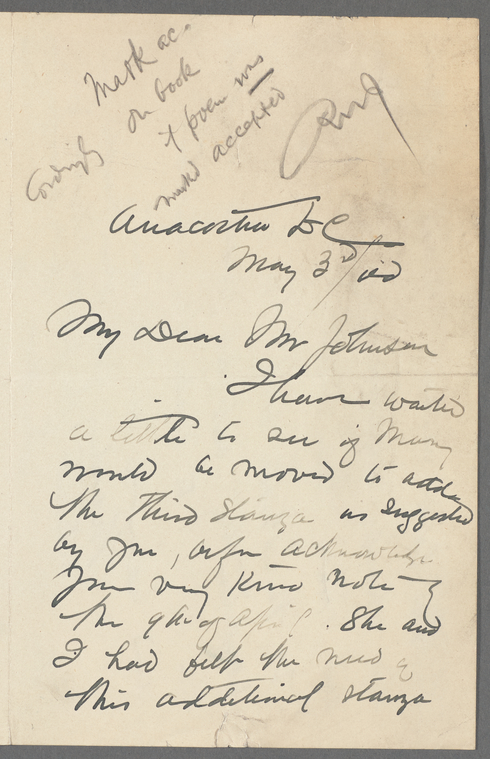 Mark ac-
cordingly
on book
& poem was
marked accepted
Anacostia DC
May 3rd/00
My Dear Mr Johnson
I have waited
a little to see if Mary
would be moved to add
the third stanza as suggested
by you, before acknowledging
your very kind note of
the 9th of April. She and
I had felt the need of
this additional stanza